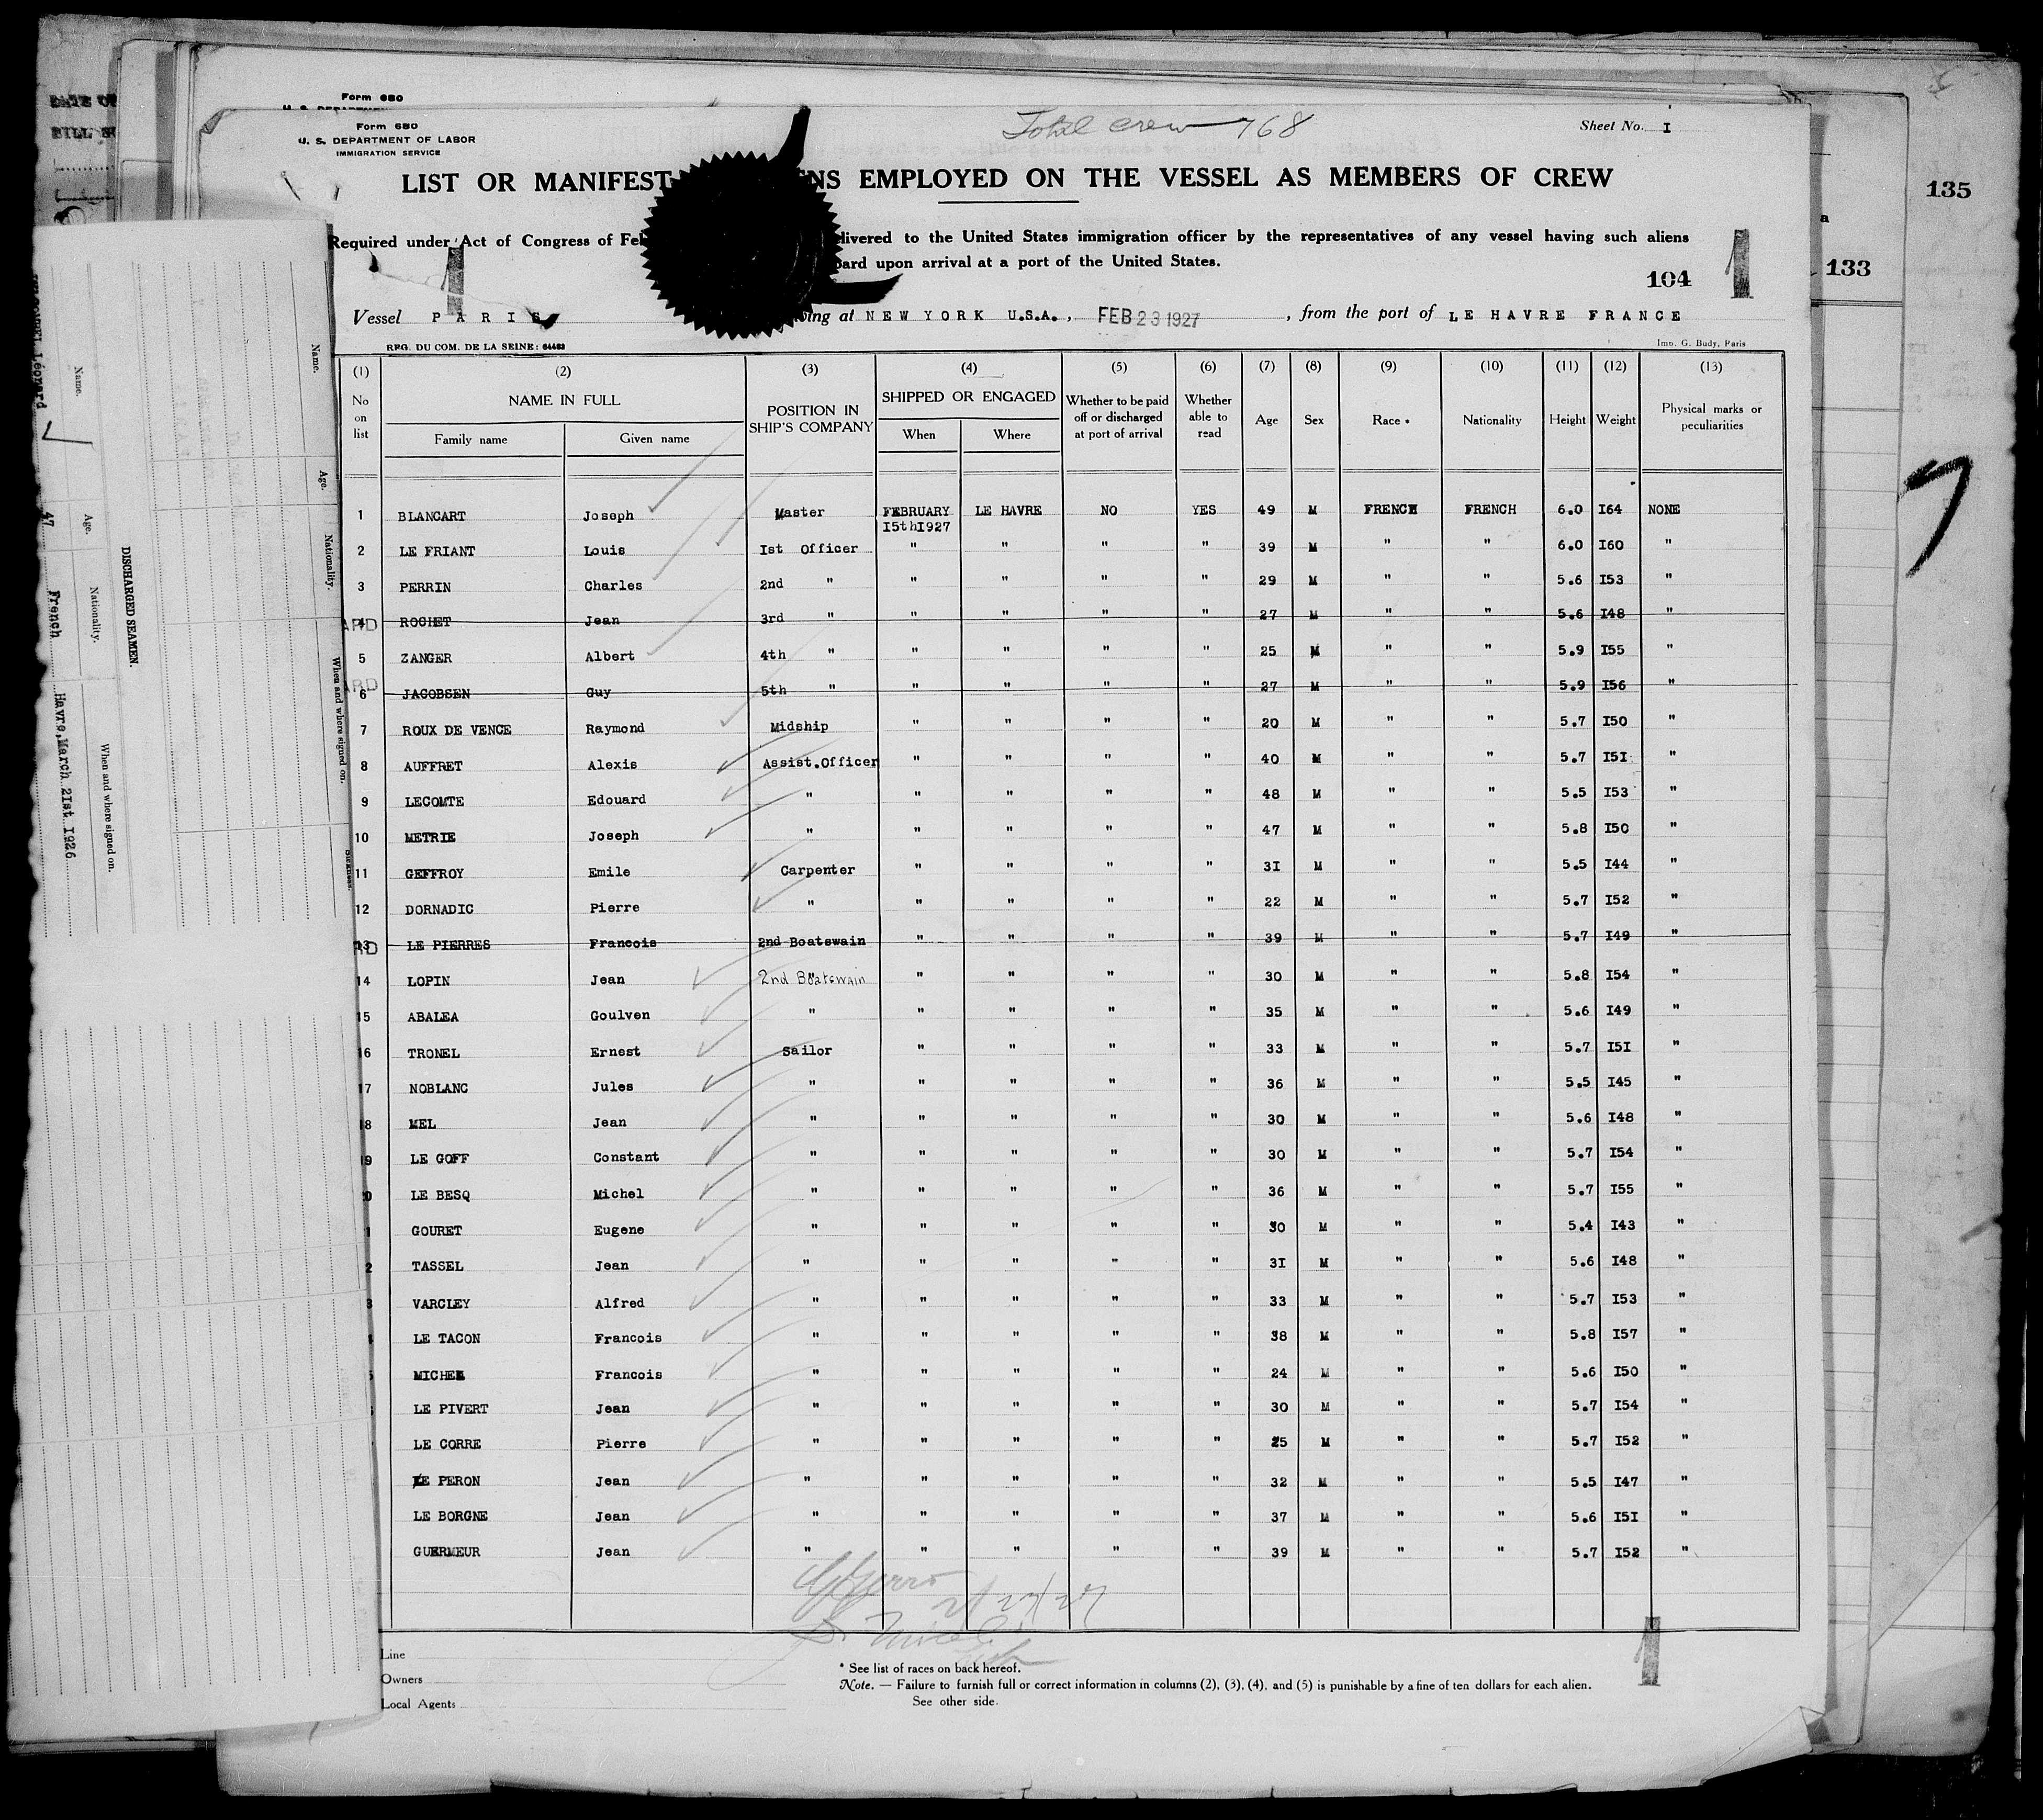 Form 680
Form 680
U. S. DEPARTMENT OF LABOR
IMMIGRATION SERVICE
Total crew 768
Sheet No. I
LIST OR MANIFEST ENS EMPLOYED ON THE VESSEL AS MEMBERS OF CREW
Required under Act of Congress of Feb livered to the United States immigration officer by the representatives of any vessel having such aliens
oard upon arrival at a port of the United States.
1 104 1
135
133
Vessel PARIS ving at NEW YORK U.S.A., FEB 23 1927, from the port of LE HAVRE FRANCE
REG. DU COM. DE LA SEINE: 64462
Imp. G. Budy, Paris
(1) (2) (3) (4) (5) (6) (7) (8) (9) (10) (11) (12) (13)
No on list NAME IN FULL POSITION IN SHIP'S COMPANY SHIPPED OR ENGAGED Whether to be paid off or discharged at port of arrival Whether able to read Age Sex Race * Nationality Height Weight Physical marks or peculiarities
Family name Given name When Where
1 BLANCART Joseph Master FEBRUARY LE HAVRE NO YES 49 M FRENCH FRENCH 6.0 I64 NONE
I5thI927
2 LE FRIANT Louis Ist Officer " " " " 39 M " " 6.0 I60 "
3 PERRIN Charles 2nd " " " " " 29 M " " 5.6 I53 "
4 ROCHET Jean 3rd " " " " " 27 M " " 5.6 I48 "
5 ZANGER Albert 4th " " " " " 25 M " " 5.9 I55 "
6 JACOBSEN Guy 5th " " " " " 27 M " " 5.9 I56 "
7 ROUX DE VENCE Raymond Midship " " " " 20 M " " 5.7 I50 "
8 AUFFRET Alexis Assist.Officer " " " " 40 M " " 5.7 I5I "
9 LECOMTE Edouard " " " " " 48 M " " 5.5 I53 "
10 METRIE Joseph " " " " " 47 M " " 5.8 I50 "
11 GEFFROY Emile Carpenter " " " " 3I M " " 5.5 I44 "
12 DORNADIC Pierre " " " " " 22 M " " 5.7 I52 "
13 LE PIERRES Francois 2nd Boatswain " " " " 39 M " " 5.7 I49 "
14 LOPIN Jean 2nd Boatswain " " " " 30 M " " 5.8 I54 "
15 ABALEA Goulven " " " " " 35 M " " 5.6 I49 "
16 TRONEL Ernest Sailor " " " " 33 M " " 5.7 I5I "
17 NOBLANC Jules " " " " " 36 M " " 5.5 I45 "
8 MEL Jean " " " " " 30 M " " 5.6 I48 "
9 LE GOFF Constant " " " " " 30 M " " 5.7 I54 "
0 LE BESQ Michel " " " " " 36 M " " 5.7 I55 "
1 GOURET Eugene " " " " " 30 M " " 5.4 I43 "
2 TASSEL Jean " " " " " 3I M " " 5.6 I48 "
3 VARCLEY Alfred " " " " " 33 M " " 5.7 I53 "
LE TACON Francois " " " " " 38 M " " 5.8 I57 "
MICHEL Francois " " " " " 24 M " " 5.6 I50 "
LE PIVERT Jean " " " " " 30 M " " 5.7 I54 "
LE CORRE Pierre " " " " " 25 M " " 5.7 I52 "
LE PERON Jean " " " " " 32 M " " 5.5 I47 "
LE BORGNE Jean " " " " " 37 M " " 5.6 I5I "
GUERMEUR Jean " " " " " 39 M " " 5.7 I52 "
Line
Owners
Local Agents
* See list of races on back hereof.
Note. — Failure to furnish full or correct information in columns (2), (3), (4), and (5) is punishable by a fine of ten dollars for each alien.
See other side.
1
Name. Age. Nationality. When and where signed on.
DISCHARGED SEAMEN.
Name. Age. Nationality. When and where signed on.
Léonard 47 French Havre, March 2Ist I926